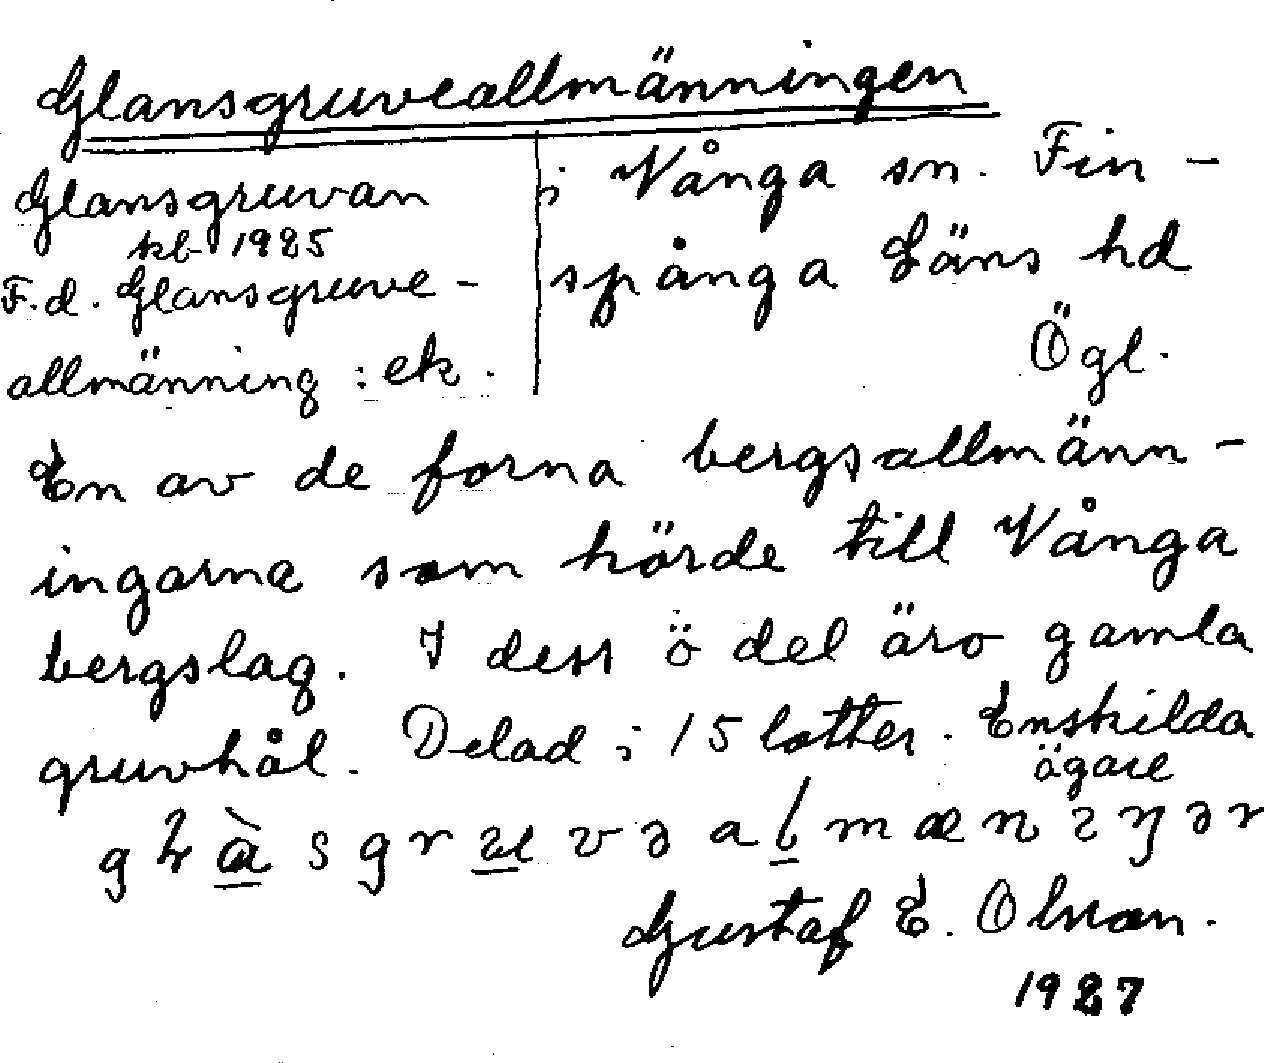 Glansgruveallmänningen
Glansgruvan
kb 1925
F.d. Glansgruve-
allmänning : ek.
i Vånga sn. Fin-
spånga Läns hd
Ögl.
En av de forna bergsallmänn-
ingarna som hörde till Vånga
bergslag. I dess ö del äro gamla
gruvhål. Delad i 15 lotter. Enskilda
ägare
Gustaf E. Olsson.
1927